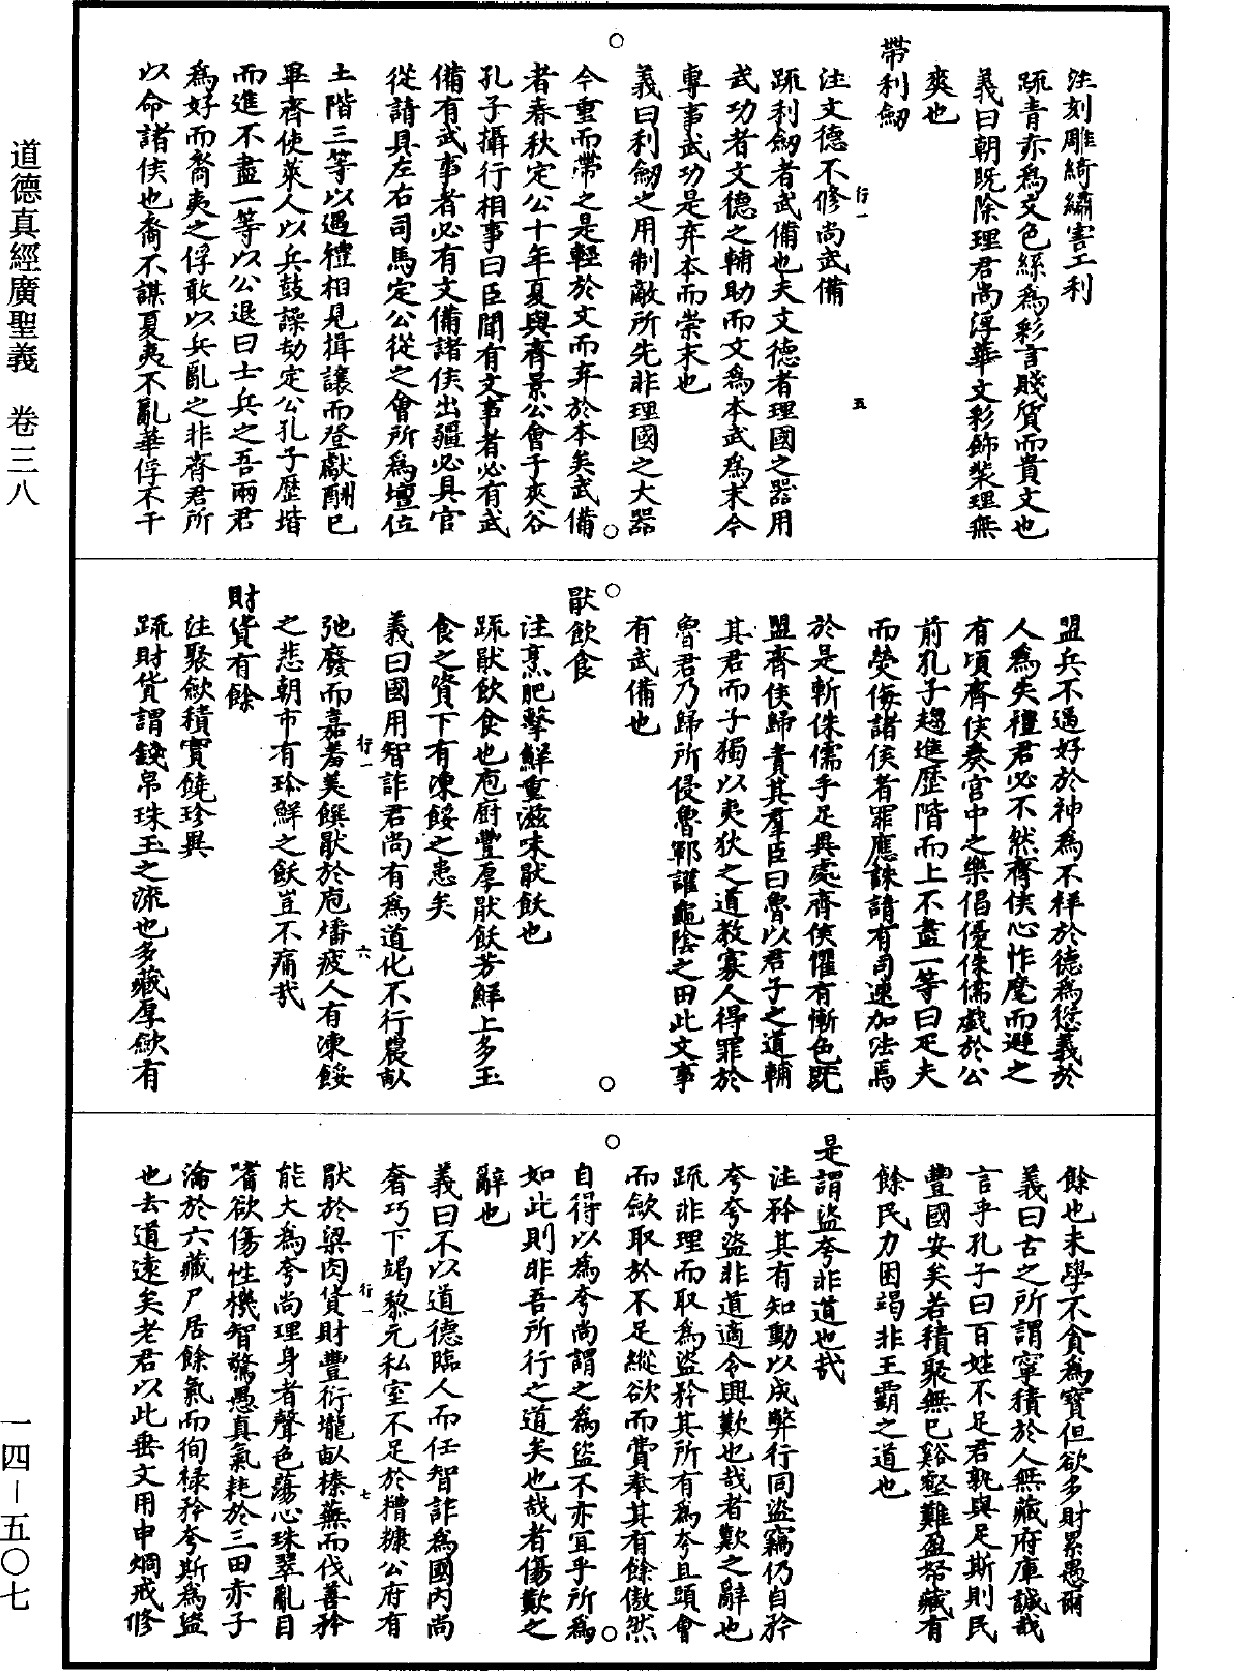 道德真經廣聖義　卷三八
注刻雕綺繡害工利
疏青赤為文色絲為彩言賤質而貴文也
義曰朝既除理君尚浮華文彩飾裝理無
爽也
帶利劒
注文德不修尚武備
疏利劒者武備也夫文德者理國之器用
武功者文德之輔助而文為本武為末今
專事武功是弃本而崇末也
義曰利劒之用制敵所先非理國之大器
今重而帶之是輕於文而弃於本矣武備
者春秋定公十年夏與齊景公會于夾谷
孔子攝行相事曰臣聞有文事者必有武
備有武事者必有文備諸侯出疆必具官
從請具左右司馬定公從之會所為壇位
土階三等以遇禮相見揖讓而登獻酬已
畢齊使萊人以兵鼓譟劫定公孔子歷堦
而進不盡一等以公退曰士兵之吾兩君
為好而裔夷之俘敢以兵亂之非齊君所
以命諸侯也裔不謀夏夷不亂華俘不干
行一
五
盟兵不逼好於神為不祥於德為愆義於
人為失禮君必不然齊侯心怍麾而避之
有頃齊侯奏宮中之樂倡優侏儒戲於公
前孔子趨進歷階而上不盡一等曰疋夫
而熒侮諸侯者罪應誅請有司速加法焉
於是斬侏儒手足異處齊侯懼有慚色既
盟齊侯歸責其羣臣曰魯以君子之道輔
其君而子獨以夷狄之道教寡人得罪於
魯君乃歸所侵魯鄆讙龜陰之田此文事
有武備也
猒飲食
注烹肥擊鮮重滋味猒飫也
疏猒飲食也庖廚豐厚猒飫芳鮮上多玉
食之資下有凍餒之患矣
義曰國用智詐君尚有為道化不行農畝
弛廢而嘉羞美饌猒於庖燔疲人有凍餒
之悲朝市有珍鮮之飫豈不痛哉
財貨有餘
注聚歛積實饒珍異
疏財貨謂錢帛珠玉之流也多藏厚歛有
行一
六
餘也未學不貪為寶但欲多財累愚爾
義曰古之所謂寧積於人無藏府庫誠哉
言乎孔子曰百姓不足君孰與足斯則民
豐國安矣若積聚無已谿壑難盈帑藏有
餘民力困竭非王霸之道也
是謂盜夸非道也哉
注矜其有知動以成弊行同盜竊仍自矜
夸夸盜非道適令興歎也哉者歎之辭也
疏非理而取為盜矜其所有為夸且頭會
而歛取於不足縱欲而賞奉其有餘傲然
自得以為夸尚謂之為盜不亦宜乎所為
如此則非吾所行之道矣也哉者傷歎之
辭也
義曰不以道德臨人而任智詐為國內尚
奢巧下竭黎元私室不足於糟糠公府有
猒於梁肉貨財豐衍壠畝榛蕪而伐善矜
能大為夸尚理身者聲色蕩心珠翠亂目
嗜欲傷性機智驚愚真氣耗於三田亦子
淪於六藏尸居餘氣而徇祿矜夸斯為盜
也去道遠矣老君以此垂文用申炯戒修
行一
七
一四－五〇七